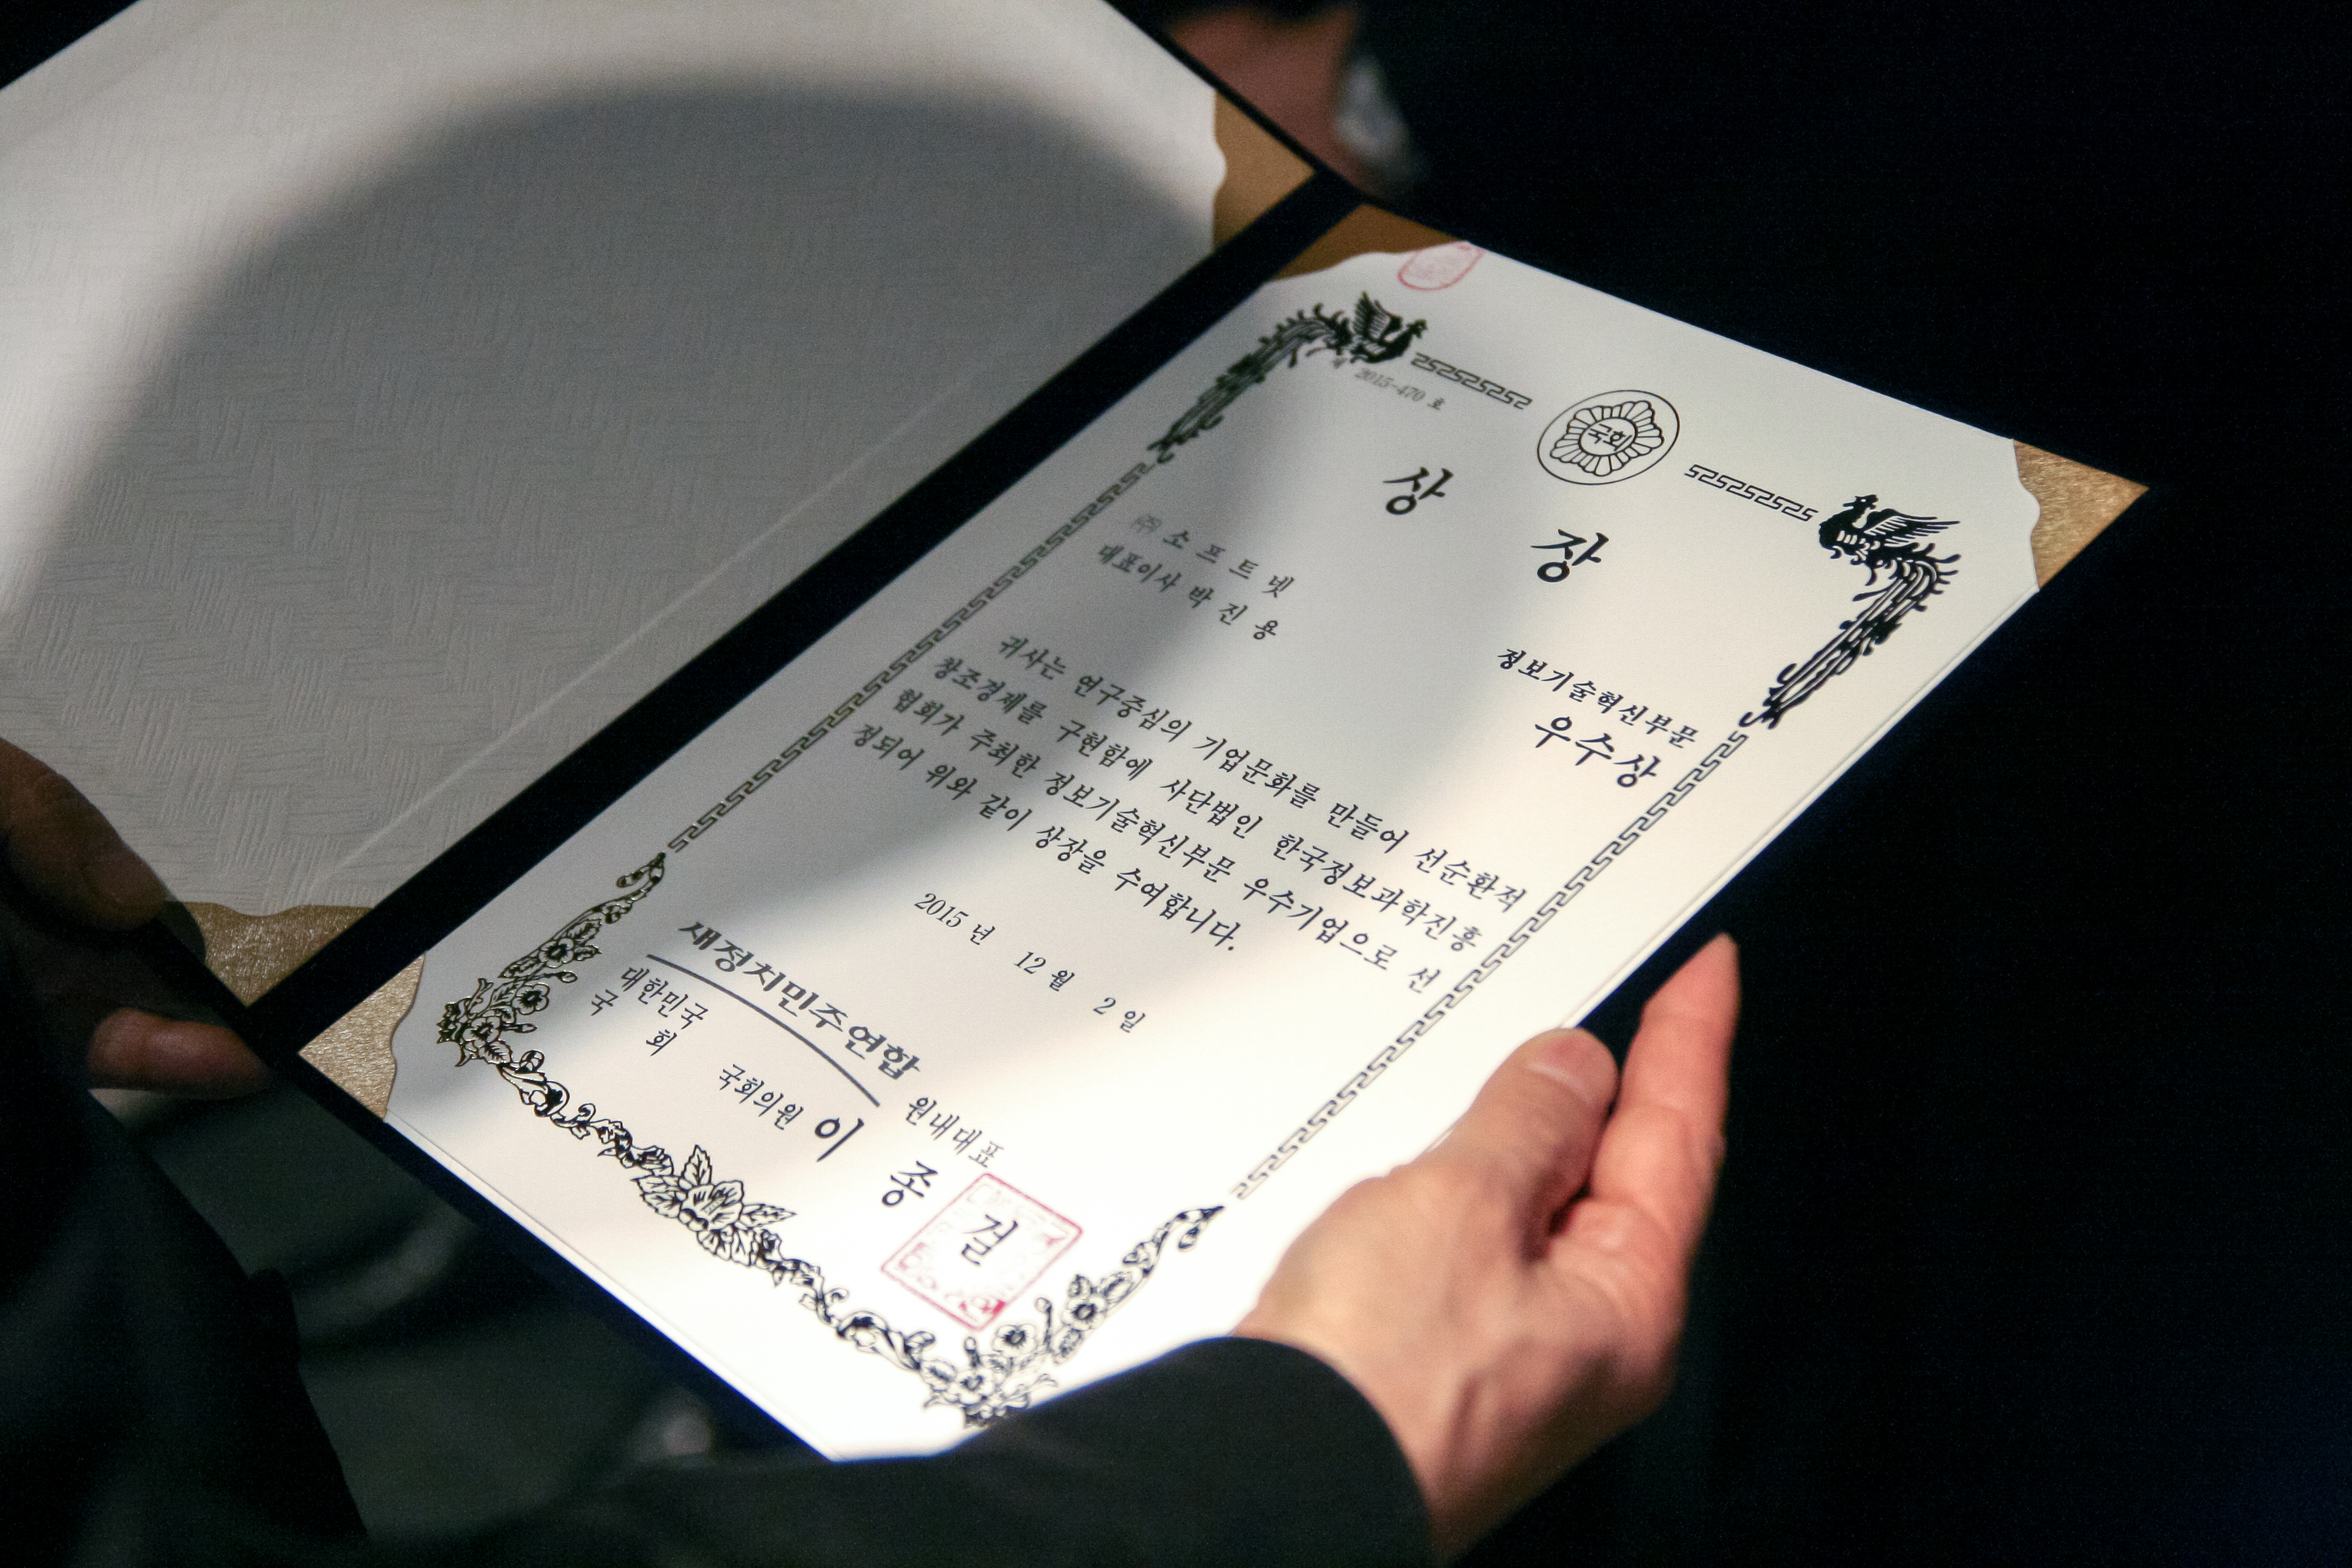 제 2015-470 호
국회
상 장
정보기술혁신부문
우수상
㈜ 소 프 트 넷
대표이사 박 진 용
귀사는 연구중심의 기업문화를 만들어 선순환적
창조경제를 구현함에 사단법인 한국정보과학진흥
협회가 주최한 정보기술혁신부문 우수기업으로 선
정되어 위와 같이 상장을 수여합니다.
2015 년 12 월 2 일
새정치민주연합 원내대표
대한민국
국 회
국회의원 이 종 걸